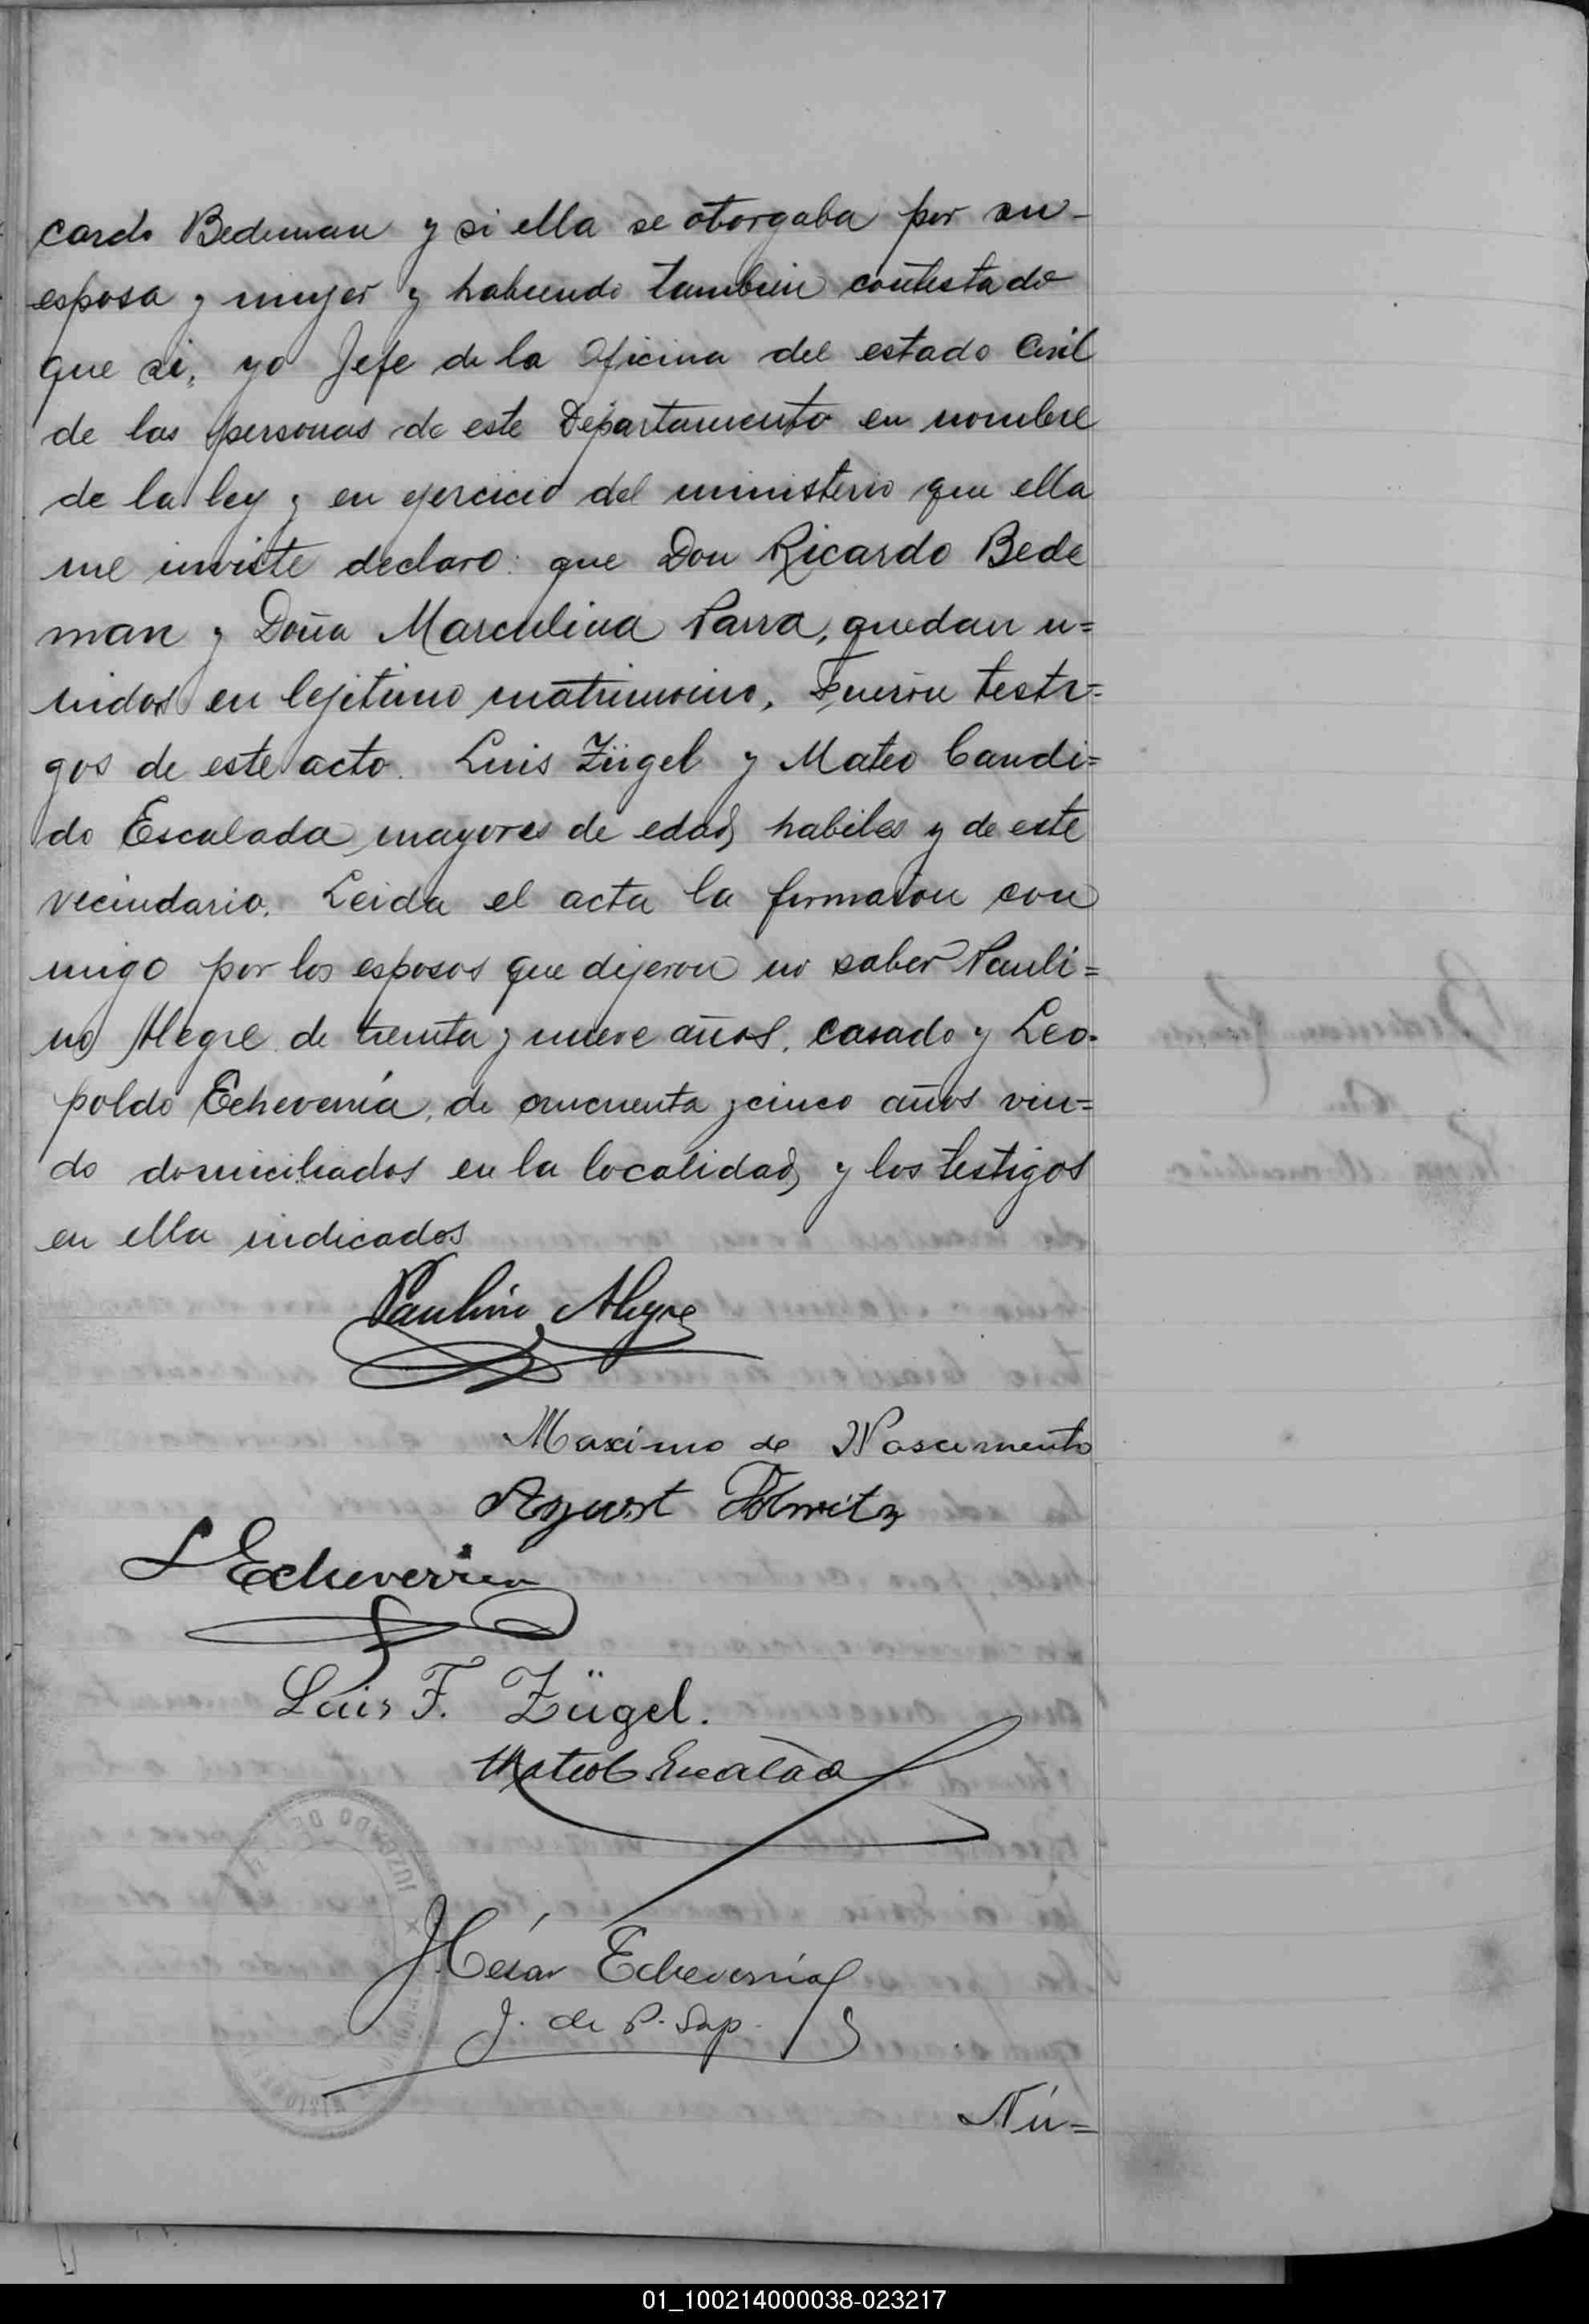 cardo Bedeman y si ella se otorgaba por su-
esposa y mujer y habiendo tambien contestado
que si, yo Jefe de la Oficina del estado Civil
de las personas de este Departamento en nombre
de la ley y en ejercicio del ministerio que ella
me inviste declaro: que Don Ricardo Bede
man y Doña Marculina Parra, quedan u=
nidos en lejitimo matrimonio, Fueron testi=
gos de este acto. Luis Zügel y Mateo Candi=
do Escalada mayores de edad, habiles y de este
vecindario. Leida el acta la firmaron con
migo por los esposos que dijeron no saber Pauli=
no Alegre de treinta y nueve años, casado y Leo-
poldo Echeverría, de cincuenta y cinco años viu=
do domiciliados en la localidad, y los testigos
en ella indicados
Paulino Alegre
Maximo de Nascimento
August
L Echeverria
Luis F. Zügel.
Mateo C. Escalada
J. César Echeverría
J. de P. Sup.
JUZGADO DE
Nú=
01_100214000038-023217